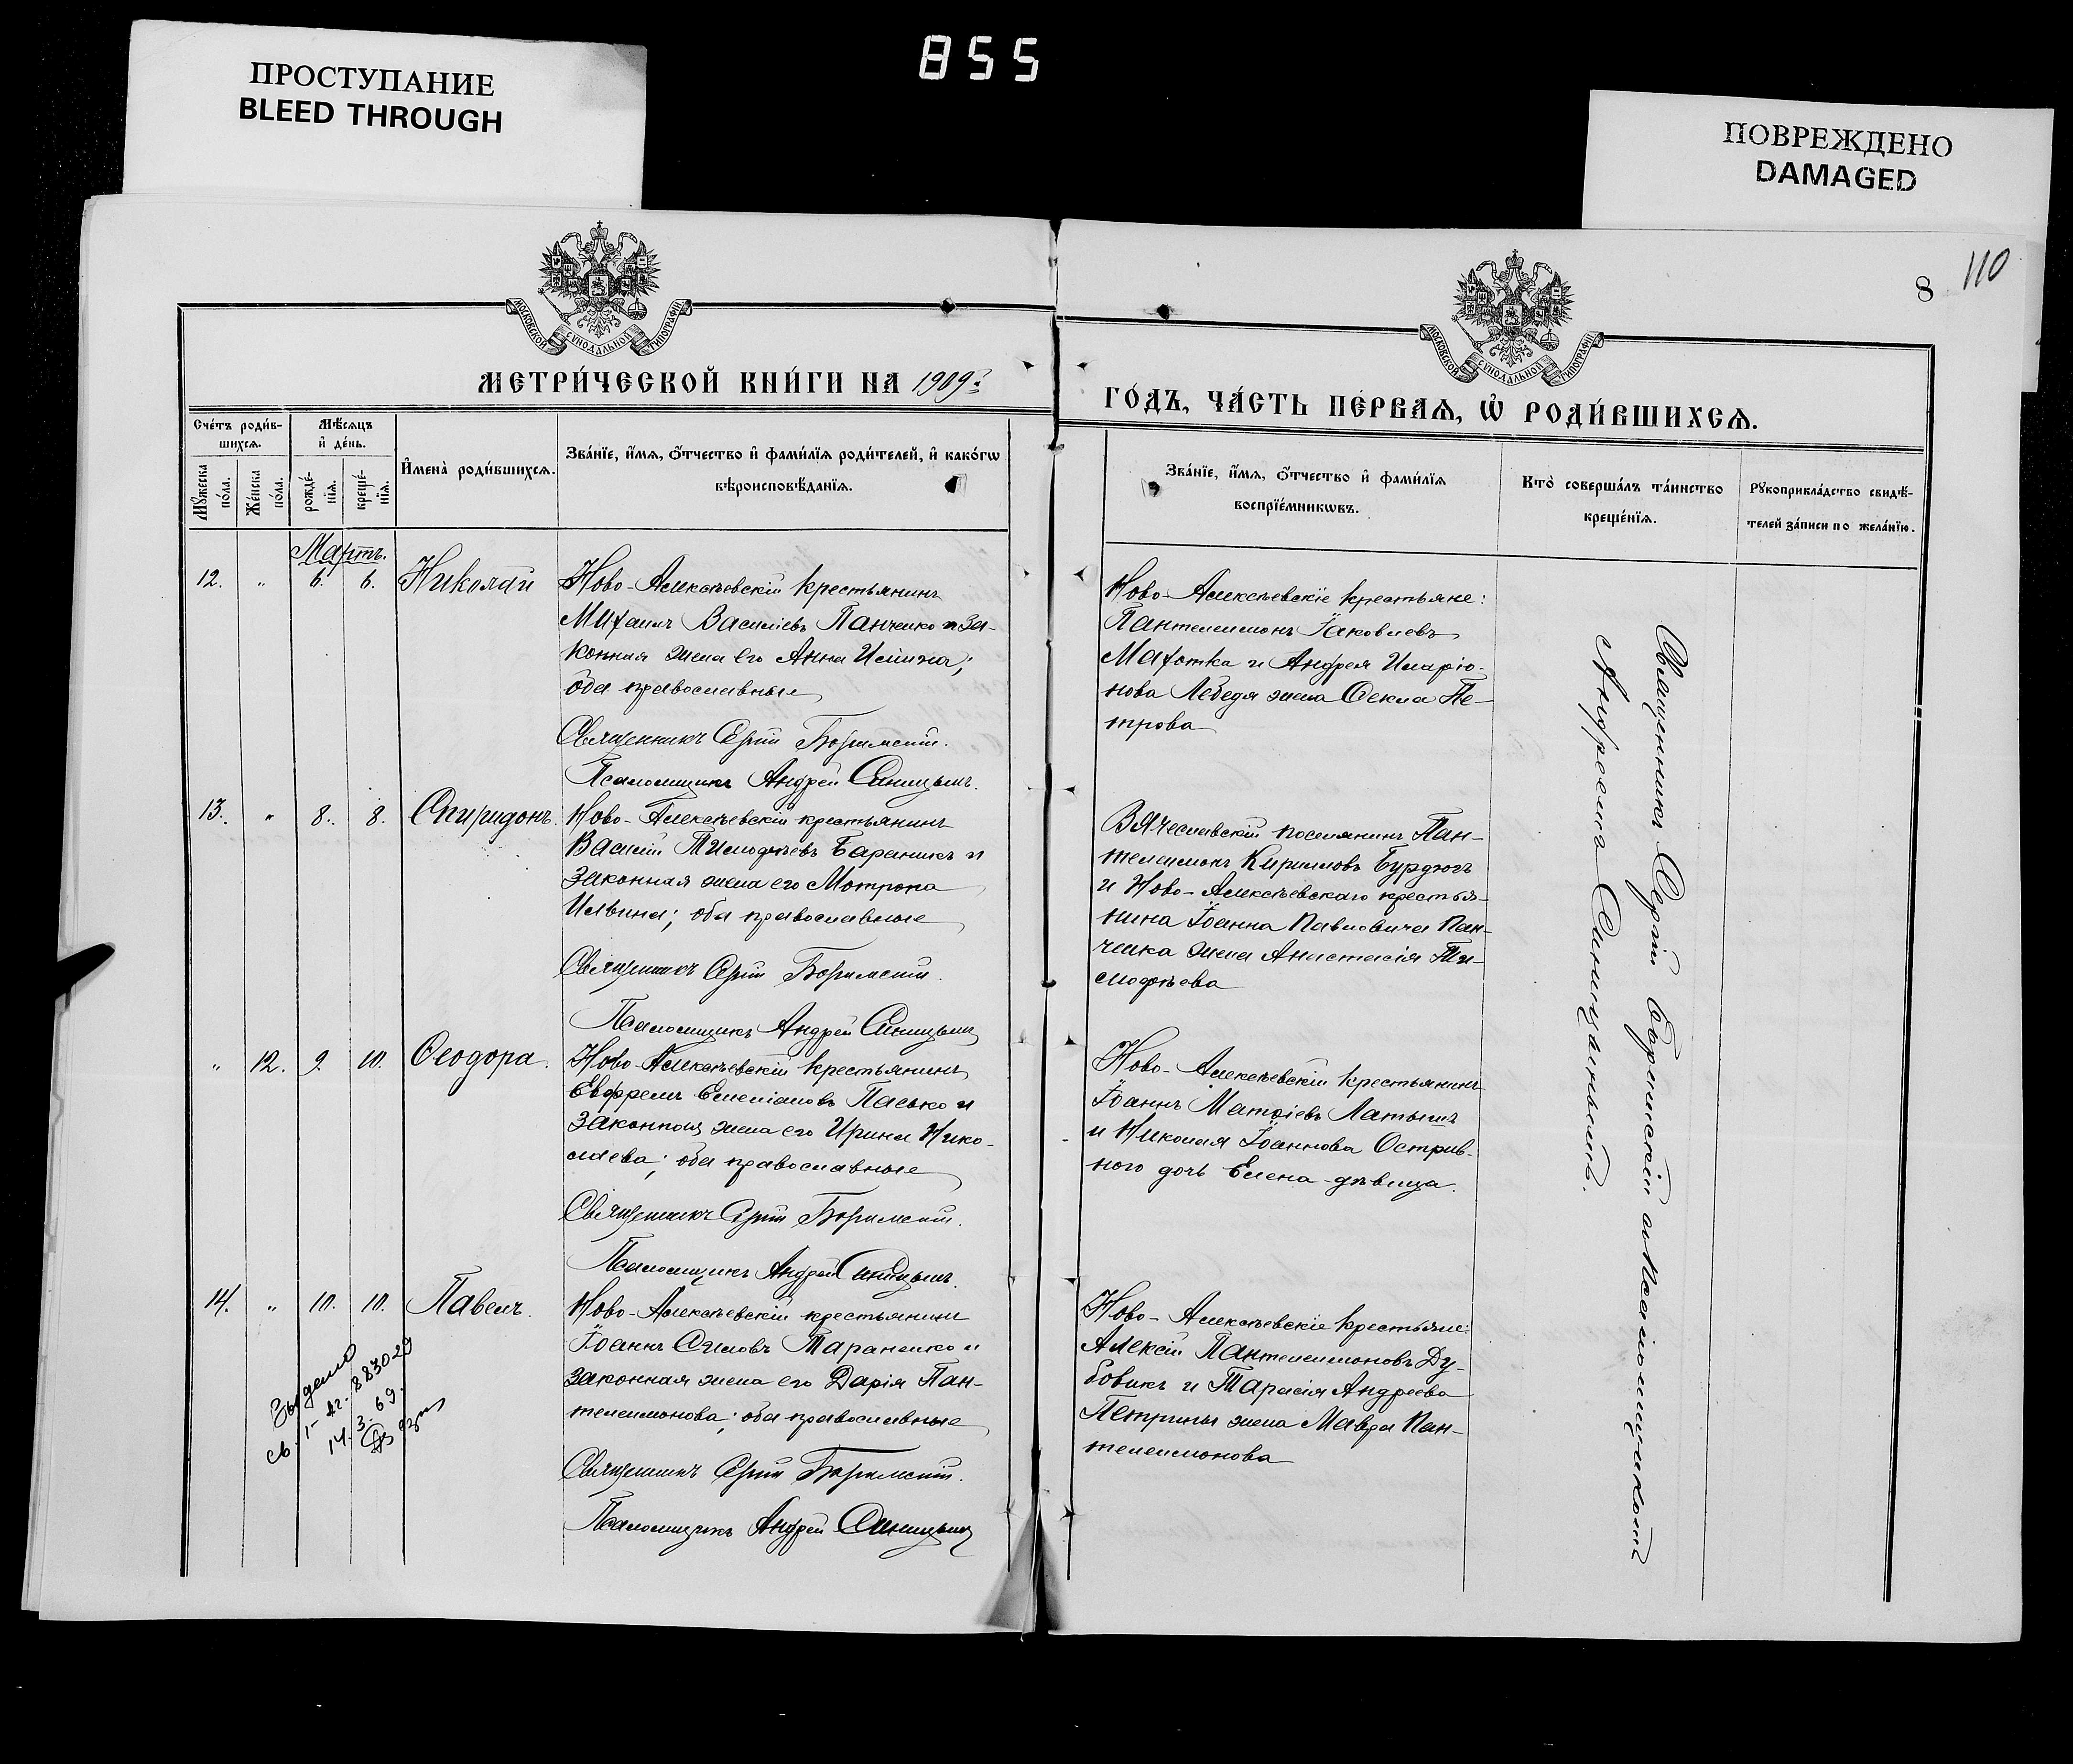 855
ПРОСТУПАНИЕ
BLEED THROUGH
ПОВРЕЖДЕНО
DAMAGED
8
110
МОСКОВСКОЙ СУНОДАЛЬНОЙ ТИПОГРАФІИ
МОСКОВСКОЙ СУНОДАЛЬНОЙ ТИПОГРАФІИ
МЕТРИ́ЧЕСКОЙ КНИ́ГИ НА 1909 г.
ГО́ДЪ, ЧА́СТЬ ПЕ́РВАѦ, Ѡ҆ РОДИ́ВШИХСѦ.
Сче́тъ роди́в-
шихсѧ.
Мꙋ́жеска
по́ла.
Же́нска
по́ла.
Мѣ́сѧцъ
и҆ де́нь.
рожде́-
нїѧ.
креще́-
нїѧ.
И҆мена̀ роди́вшихсѧ.
Зва́нїе, и҆́мѧ, ѻ҆́тчество и҆ фами́лїѧ роди́телей, и҆ како́гѡ
вѣроисповѣ́данїѧ.
Зва́нїе, и҆́мѧ, ѻ҆́тчество и҆ фами́лїѧ
воспрїе́мникѡвъ.
Кто̀ соверша́лъ та́инство
креще́нїѧ.
Рꙋкоприкла́дство свидѣ́-
телей за́писи по жела́нїю.
Мартъ.
12. " 6. 6. Николай
Ново-Алексѣевскій крестьянинъ
Михаилъ Василіевъ Панченко и за-
конная жена его Анна
оба православные
Священникъ Сергій
Псаломщикъ Андрей Синицынъ.
Ново-Алексѣевскіе крестьяне:
Пантелеимонъ Іаковлевъ
Махотка и Андрея Иларіо-
нова Лебедя жена Ѳекла Пе-
трова
13. " 8. 8. Спиридонъ.
Ново-Алексѣевскій крестьянинъ
Василій Тимоѳеевъ Бараникъ и
законная жена его Мотрона
Ильина; оба православные
Священникъ Сергій
Псаломщикъ Андрей Синицынъ
Вячеславскій поселянинъ Пан-
телеимонъ Кирилловъ Бурдюгъ
и Ново-Алексѣевскаго крестья-
нина Іоанна Павловича Пан-
ченка жена Анастасія Ти-
моѳеева
" 12. 9. 10. Ѳеодора.
Ново-Алексѣевскій крестьянинъ
Евфремъ Емеліановъ Пасько и
законная жена его Ирина Нико-
лаева; оба православные
Священникъ Сергій
Псаломщикъ Андрей Синицынъ.
Ново-Алексѣевскій крестьянинъ
Іоаннъ Матѳіевъ Латышъ
и Николая Іоаннова Острив-
ного дочь Елена-дѣвица.
14. " 10. 10. Павелъ.
Ново-Алексѣевскій крестьянинъ
Іоаннъ Симовъ Тараненко и
законная жена его Дарія Пан-
телеимонова; оба православные
Священникъ Сергій
Псаломщикъ Андрей Синицынъ
Ново-Алексѣевскіе крестьяне:
Алексій Пантелеимоновъ Ду-
бовикъ и Тарасія Андреева
Петрины жена Мавра Пан-
телеимонова
883029
14.3.69.
Священникъ Сергій и Псаломщикомъ
Андреемъ Синицынымъ.